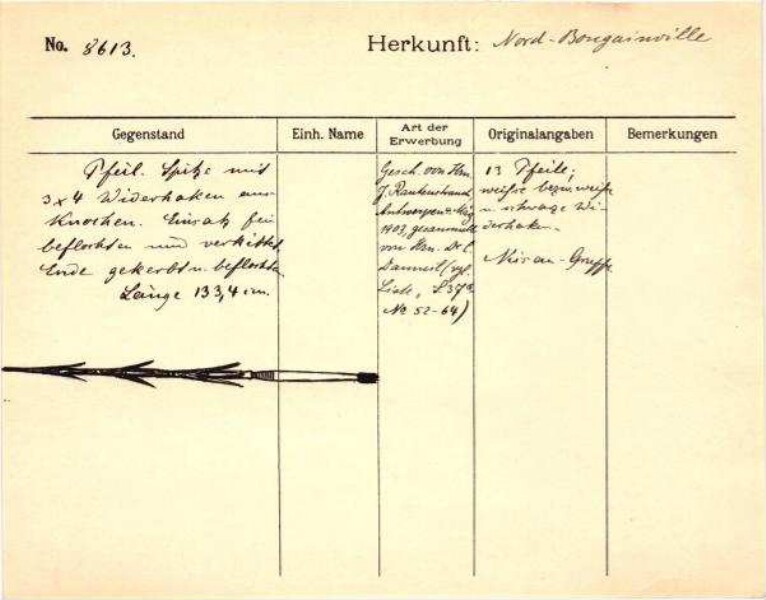 No. 8613.
Herkunft: Nord-Bougainville
Gegenstand
Einh. Name
Art der Erwerbung
Originalangaben
Bemerkungen
Pfeil. Spitze mit
3 x 4 Widerhaken aus
Knochen. Einsatz fein
beflochten und verkittet
Ende gekerbt u. beflochten
Länge 133,4 cm.
Gesch. von Hrn.
J. Rautenstrauch
Antwerpen
1903, gesammelt
von Hrn. Dr.
(vgl.
Liste, S. 37
No 52-64)
13 Pfeile;
weiße bezw. weiße
u. schwarze Wi-
derhaken.
Nissan-Gruppe